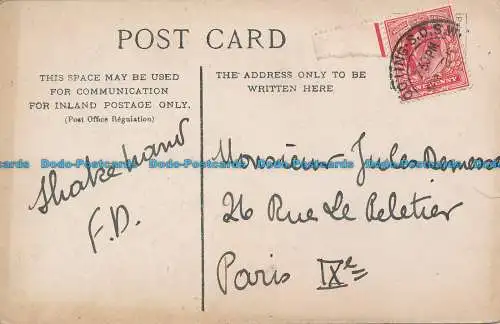 POST CARD
THIS SPACE MAY BE USED
FOR COMMUNICATION
FOR INLAND POSTAGE ONLY.
(Post Office Régulation)
THE ADDRESS ONLY TO BE
WRITTEN HERE
TOOTING. S.O. S.W.
Shake hand
F.D.
Monsieur Jules
26 Rue Le Peletier
Paris IXe
Dodo-Postcards Dodo-Postcards Dodo-Postcards Dodo-Postcards